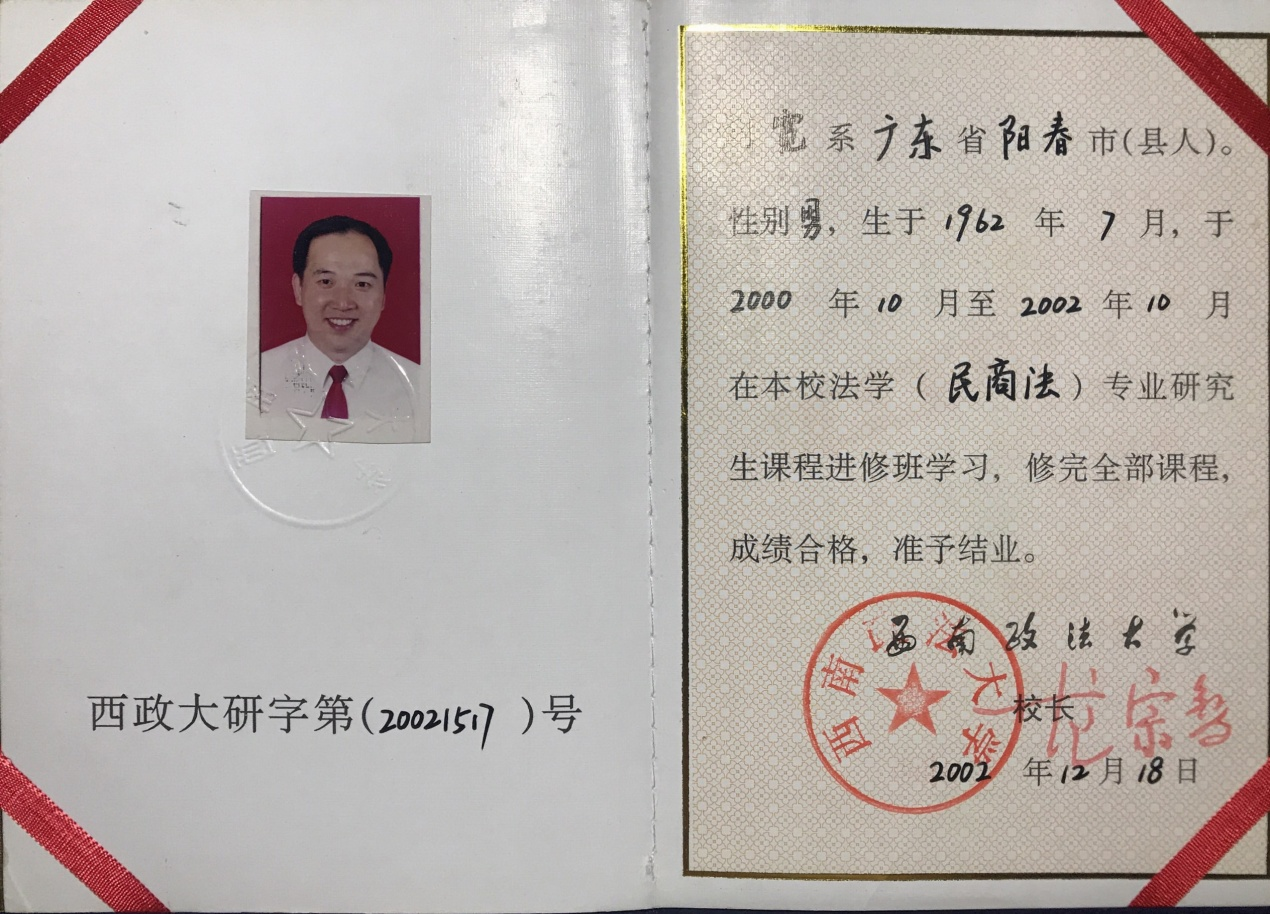 西政大研字第(20021517)号
系广东省阳春市(县人)。
性别男，生于1962年7月，于
2000年10月至2002年10月
在本校法学（民商法）专业研究
生课程进修班学习，修完全部课程，
成绩合格，准予结业。
西南政法大学
西南政法大学
校长
2002年12月18日